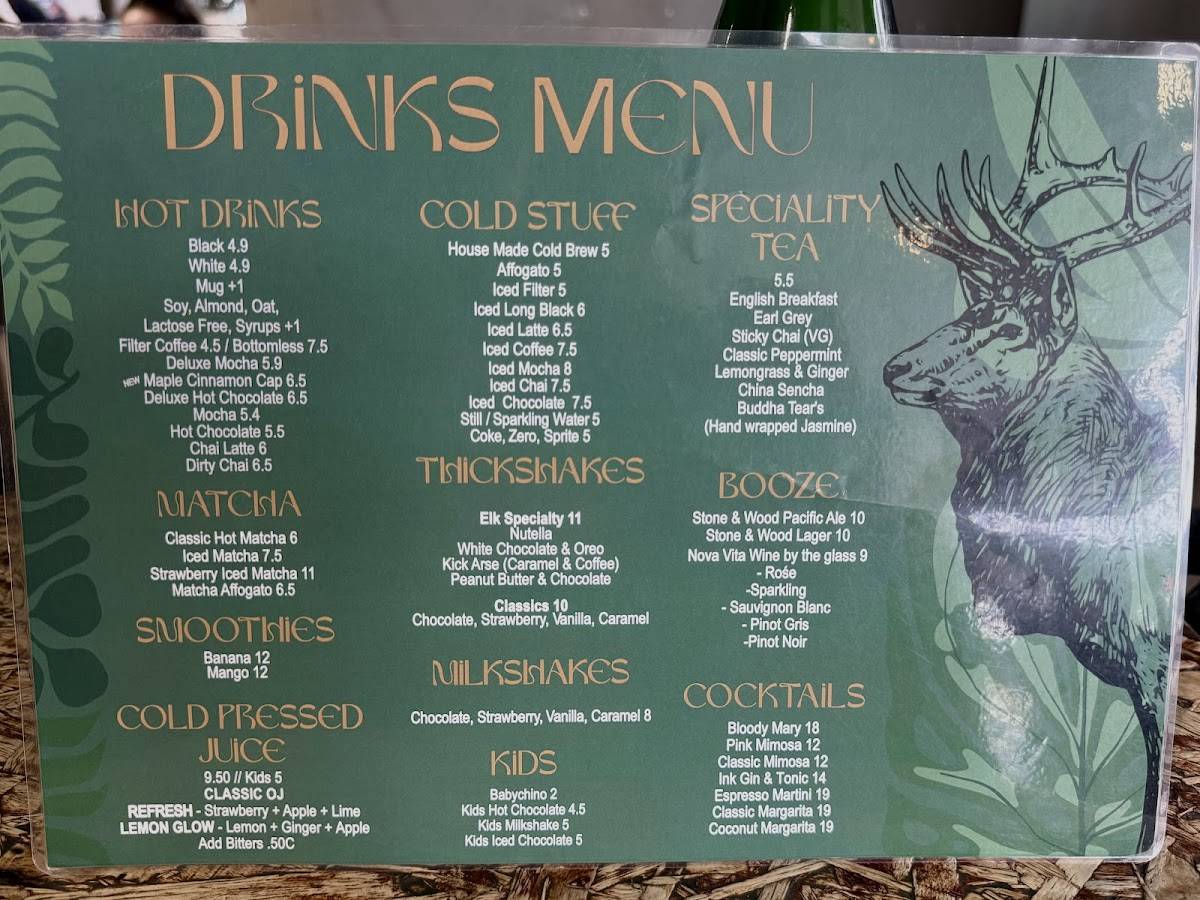 DRINKS MENU
HOT DRINKS
Black 4.9
White 4.9
Mug +1
Soy, Almond, Oat,
Lactose Free, Syrups +1
Filter Coffee 4.5 / Bottomless 7.5
Deluxe Mocha 5.9
NEW Maple Cinnamon Cap 6.5
Deluxe Hot Chocolate 6.5
Mocha 5.4
Hot Chocolate 5.5
Chai Latte 6
Dirty Chai 6.5
MATCHA
Classic Hot Matcha 6
Iced Matcha 7.5
Strawberry Iced Matcha 11
Matcha Affogato 6.5
SMOOTHIES
Banana 12
Mango 12
COLD PRESSED
JUICE
9.50 // Kids 5
CLASSIC OJ
REFRESH - Strawberry + Apple + Lime
LEMON GLOW - Lemon + Ginger + Apple
Add Bitters .50C
COLD STUFF
House Made Cold Brew 5
Affogato 5
Iced Filter 5
Iced Long Black 6
Iced Latte 6.5
Iced Coffee 7.5
Iced Mocha 8
Iced Chai 7.5
Iced Chocolate 7.5
Still / Sparkling Water 5
Coke, Zero, Sprite 5
THICKSHAKES
Elk Specialty 11
Nutella
White Chocolate & Oreo
Kick Arse (Caramel & Coffee)
Peanut Butter & Chocolate
Classics 10
Chocolate, Strawberry, Vanilla, Caramel
MILKSHAKES
Chocolate, Strawberry, Vanilla, Caramel 8
KIDS
Babychino 2
Kids Hot Chocolate 4.5
Kids Milkshake 5
Kids Iced Chocolate 5
SPECIALITY
TEA
5.5
English Breakfast
Earl Grey
Sticky Chai (VG)
Classic Peppermint
Lemongrass & Ginger
China Sencha
Buddha Tear's
(Hand wrapped Jasmine)
BOOZE
Stone & Wood Pacific Ale 10
Stone & Wood Lager 10
Nova Vita Wine by the glass 9
- Rośe
-Sparkling
- Sauvignon Blanc
- Pinot Gris
-Pinot Noir
COCKTAILS
Bloody Mary 18
Pink Mimosa 12
Classic Mimosa 12
Ink Gin & Tonic 14
Espresso Martini 19
Classic Margarita 19
Coconut Margarita 19